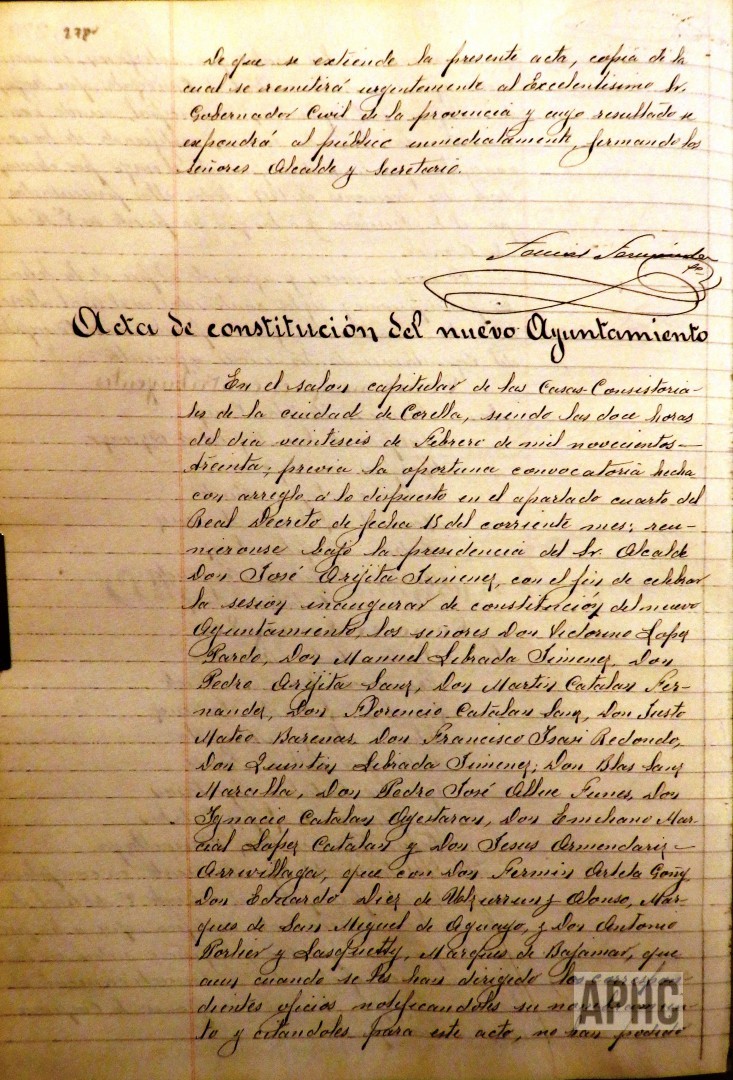 278
De que se extiende la presente acta, copia de la
cual se remitirá urgentemente al Excelentísimo Sr.
Gobernador Civil de la provincia y cuyo resultado se
expondrá al público inmediatamente, firmando los
señores Alcalde y Secretario.
Tomás Fernández
Acta de constitución del nuevo Ayuntamiento
En el salon capitular de las Casas-Consistoria-
les de la ciudad de Corella, siendo las doce horas
del dia veintiseis de Febrero de mil novecientos
treinta; previa la oportuna convocatoria hecha
con arreglo á lo dispuesto en el apartado cuarto del
Real Decreto de fecha 15 del corriente mes; reu-
nieronse bajo la presidencia del Sr. Alcalde
Don José Arijita Jimenez, con el fin de celebrar
la sesion inaugurar de constitución del nuevo
Ayuntamiento, los señores Don Victorino Lopez
Pardo, Don Manuel Librada Jimenez, Don
Pedro Arijita Sanz, Don Martin Catalan Fer-
nandez, Don Florencio Catalan Sanz, Don Justo
Mateo Barenas, Don Francisco Isasi Redondo,
Don Quintin Librada Jimenez; Don Blas Sanz
Marcilla, Don Pedro José Allue Funes, Don
Ignacio Catalan Ayestaran, Don Emiliano Mar-
cial Lopez Catalan y Don Jesus Armendariz
Arrivillaga, que con Don Fermin Arteta Goñy
Don Eduardo Diez de Ulzurrunz Alonso, Mar-
ques de San Miguel de Aguayo, y Don Antonio
Porlier y Lasquetty, Marques de Bajamar, que
aun cuando se les han dirigido los correspon-
dientes oficios notificandoles su nombramien-
to y citandoles para este acto, no han podido
APHC